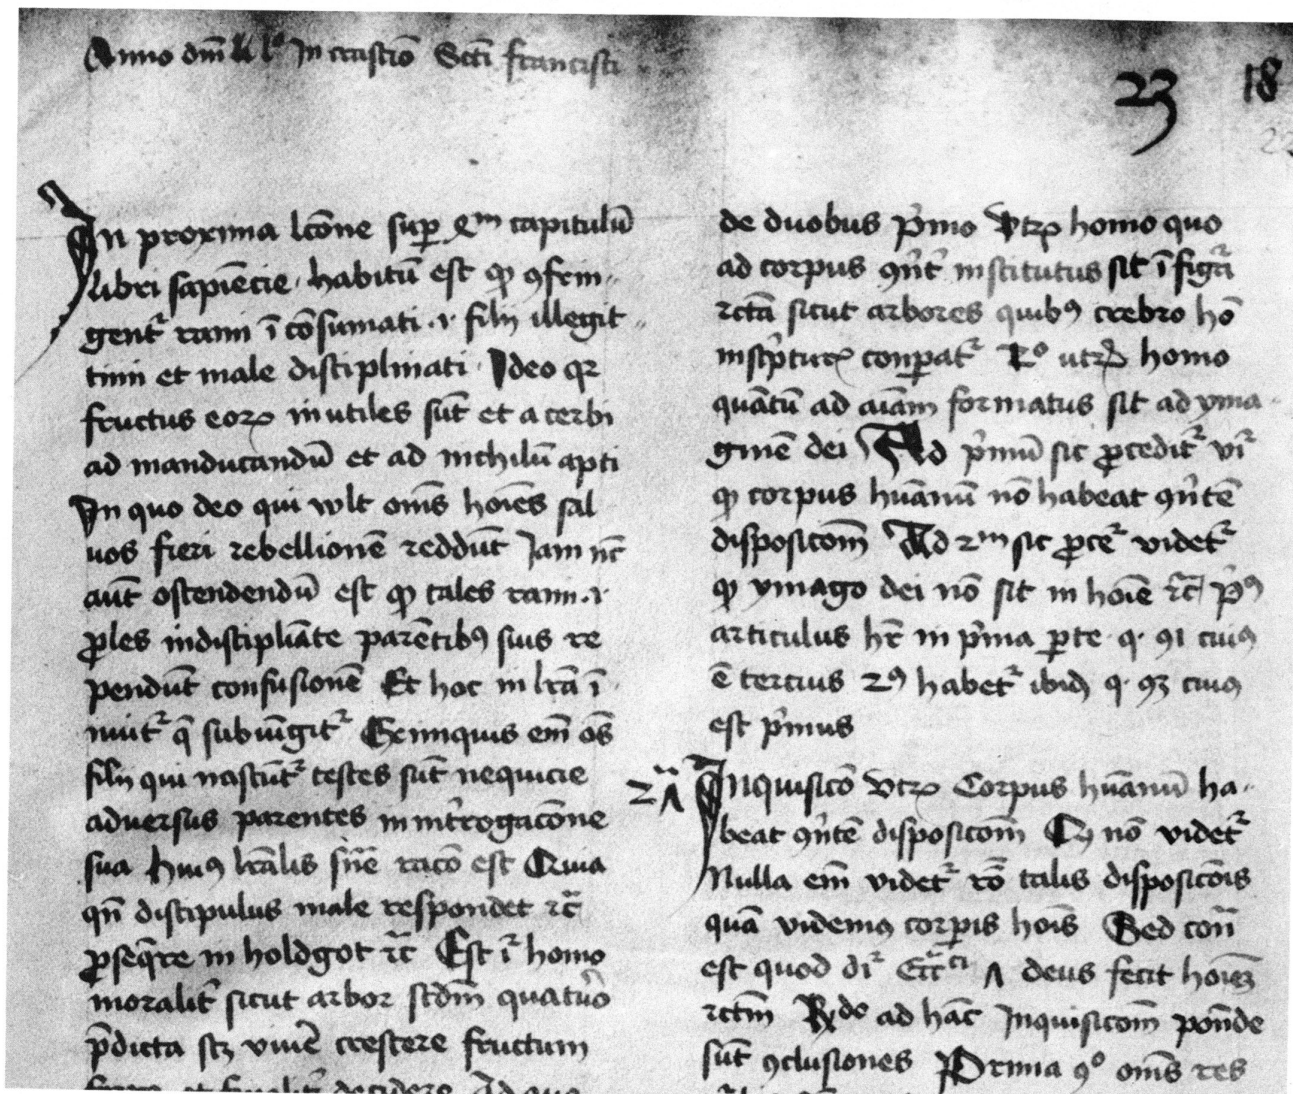 Anno dm̄ lº In crastīo Scti francisci
23 18
In proxima lcōne sup qm capitulū
libri sapiēcie habitū est qꝫ ꝯfrin
gentr rami īcōsumati .i. filij illegit
timi et male disciplinati Ideo qr
fructus eoꝝ inutiles sūt et acerbi
ad manducandū et ad nichilū apti
In quo deo qui wlt om̄s hoīes sal
uos fieri rebellionē reddūt Jam nc̄
aūt ostendendū est qꝫ tales rami .i.
ꝓles indiscipliāte parētibꝰ suis re
pendūt confusionē Et hoc in lrā ī
nuitr q̄ subiūgitr Ex iniquis em̄ oēs
filij qui nascūtr testes sūt nequicie
adversus parentes in int̄rogacōne
sua Huiꝰ lrālis snīe racō est Quia
qn̄ discipulus male respondet ꝛc̄
ꝓseqr̄e in holdgot ꝛc̄ Est ir homo
moralitr sicut arbor scdm̄ quatuor
p̄dicta scꝫ viuē crescere fructum
ferre et finalitr decidere Ad quo
de duobus pͥmo Vtrꝫ homo quo
ad corpus ꝯn̄tr institutus sit ī figrā
rctā sicut arbores quibꝰ crebro hō
in sc̄pturꝫ conparatr 2º utrꝫ homo
quātū ad aīam formatus sit ad yma
ginē dei Ad pͥmū sic ꝓceditr vir
qꝫ corpus hūanū nō habeat ꝯn̄tē
disposicōm Ad 2m sic ꝓcer videtr
qꝫ ymago dei nō sit in hoīe ꝛc̄ pͥꝰ
articulus hr̄ in pͥma ꝑte q. 91 cuiꝰ
ē tercius 2ꝰ habetr ibidꝫ q. 93 cuiꝰ
est pͥmus
Inquisicō Vtrꝫ Corpus hūanū ha
beat ꝯn̄tē disposicōm Qꝫ nō videtr
Nulla em̄ videtr rō talis disposicōis
quā videmꝰ corꝑis hoīs Sed con̄
est quod dr Ecctci 7 deus fecit hoīeꝫ
rctm̄ Rdeo ad hāc Inquisicōm ponēde
sūt ꝯclusiones Prima ꝯº om̄s res